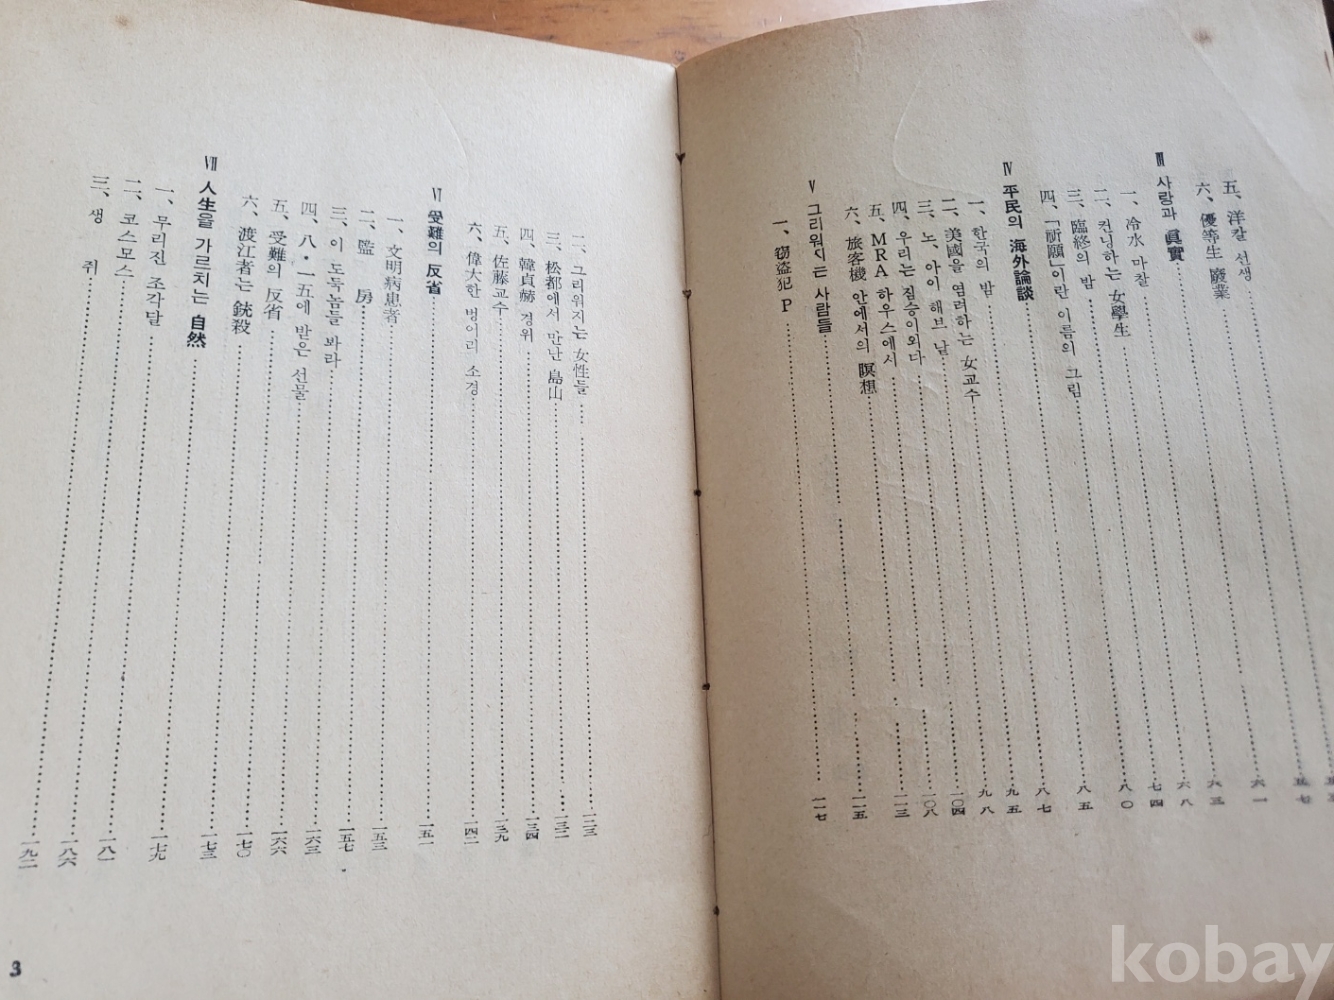 五、洋칼 선생……五三
六、優等生 廢業……五七
Ⅲ 사랑과 眞實……六一
一、冷水 마찰……六三
二、컨닝하는 女學生……六八
三、臨終의 밤……七四
四、「祈願」이란 이름의 그림……八〇
Ⅳ 平民의 海外論談……八五
一、한국의 밤……八七
二、美國을 염려하는 女교수……九五
三、노、아이 해브 낱……九八
四、우리는 짐승이외다……一〇四
五、MRA 하우스에서……一〇八
六、旅客機 안에서의 瞑想……一一三
Ⅴ 그리워지는 사람들……一一五
一、竊盜犯 P……一一七
二、그리워지는 女性들……一二三
三、松都에서 만난 島山……一三二
四、韓貞赫 경위……一三四
五、佐藤교수……一三九
六、偉大한 벙어리 소경……一四二
Ⅵ 受難의 反省……一五一
一、文明病患者……一五三
二、監 房……一五七
三、이 도둑놈들 봐라……一六三
四、八·一五에 받은 선물……一六六
五、受難의 反省……一七〇
六、渡江者는 銃殺……一七三
Ⅶ 人生을 가르치는 自然……一七九
一、무리진 조각달……一八一
二、코스모스……一八六
三、생 쥐……一九二
3
kobay